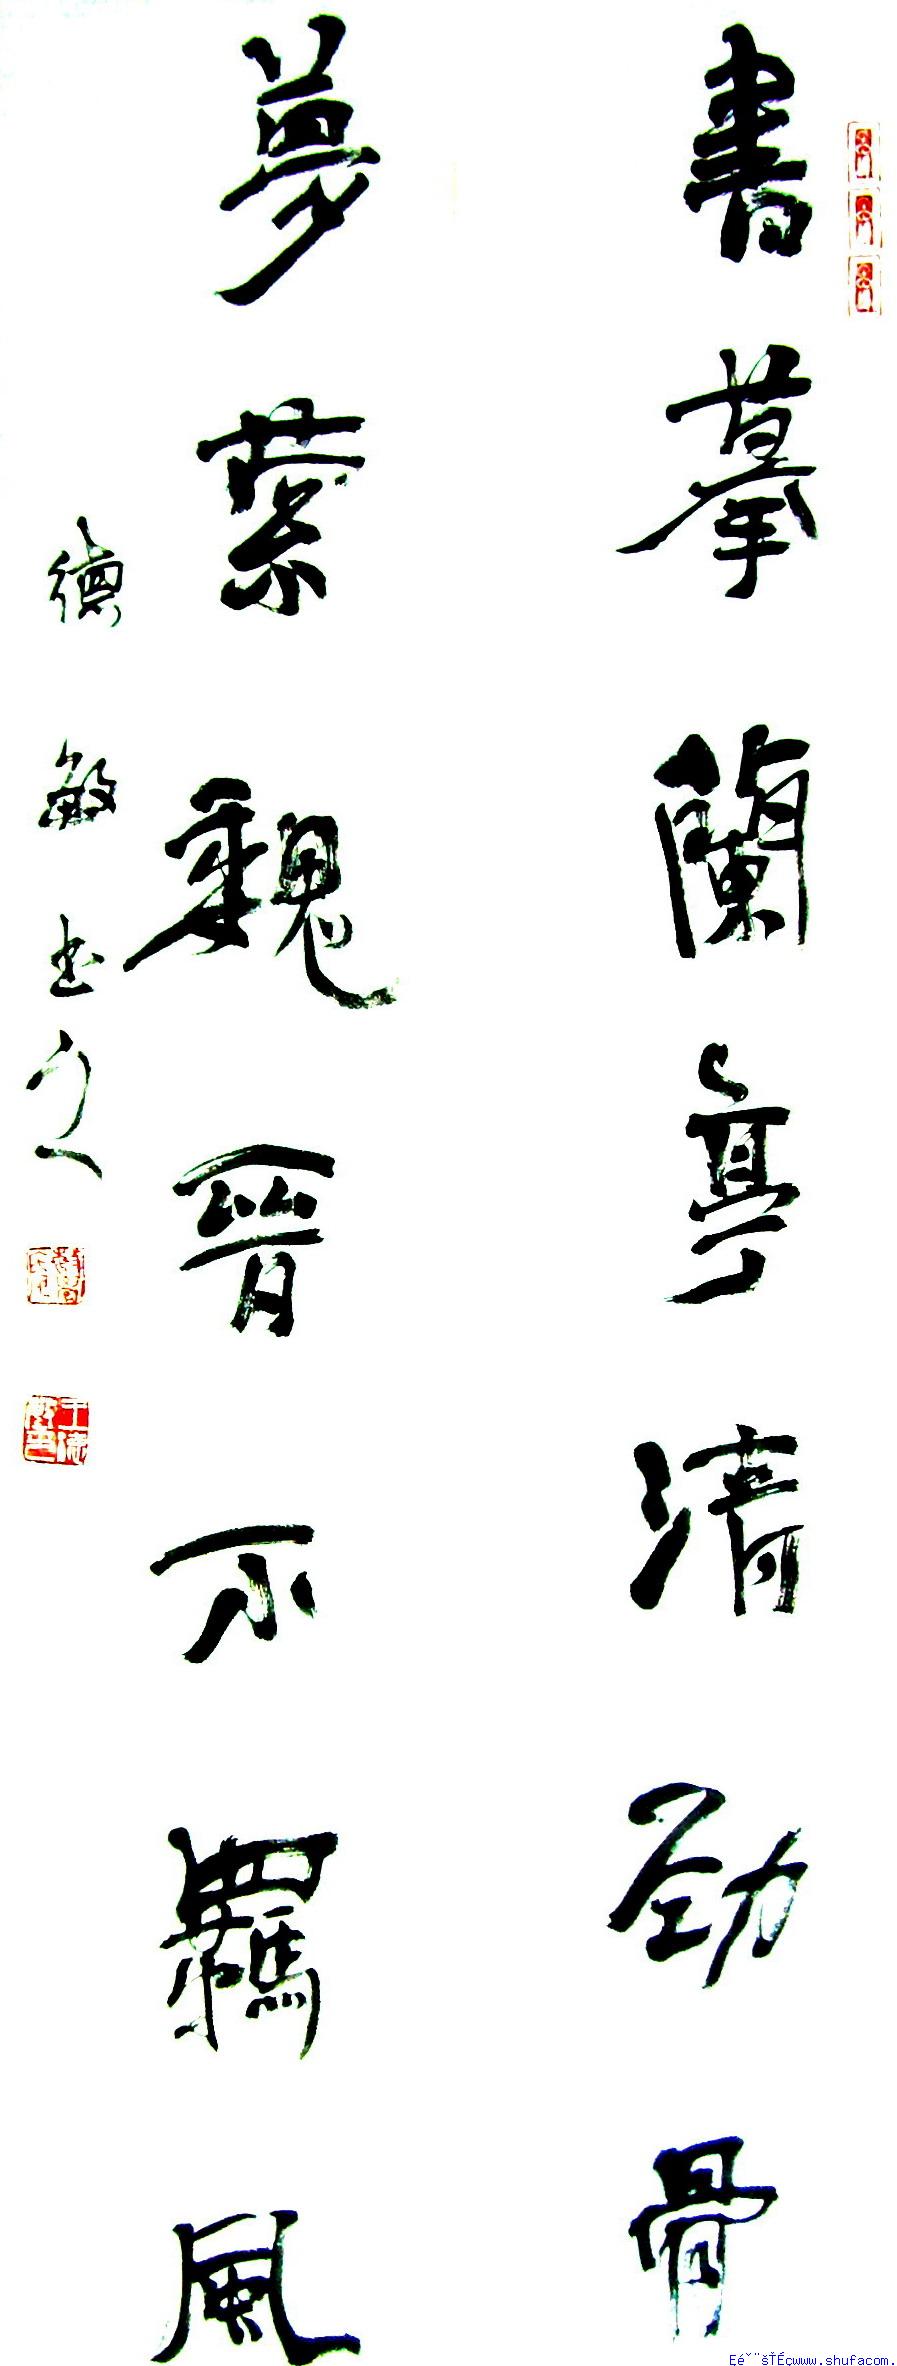 書摹蘭亭清勁骨
夢縈魏晉不羈風
德敏书
www.shufacom.